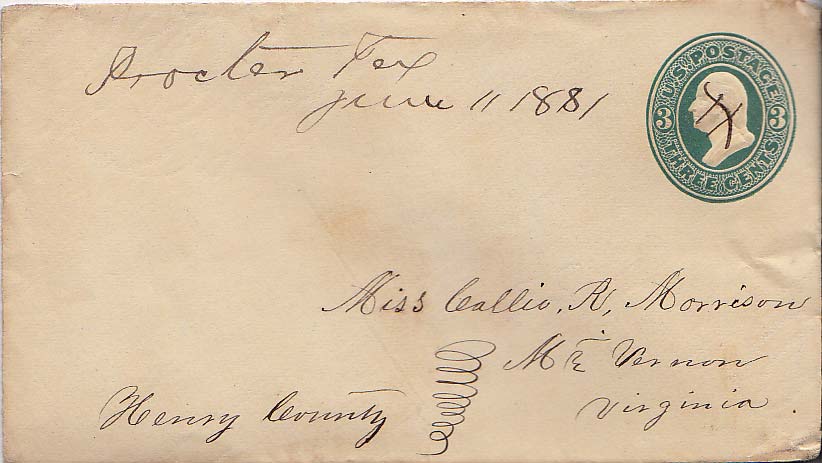 Procter Tex
June 11 1881
U.S. POSTAGE
3 3
THREE CENTS
Miss Callie, R, Morrison
Mt Vernon
Henry County
Virginia